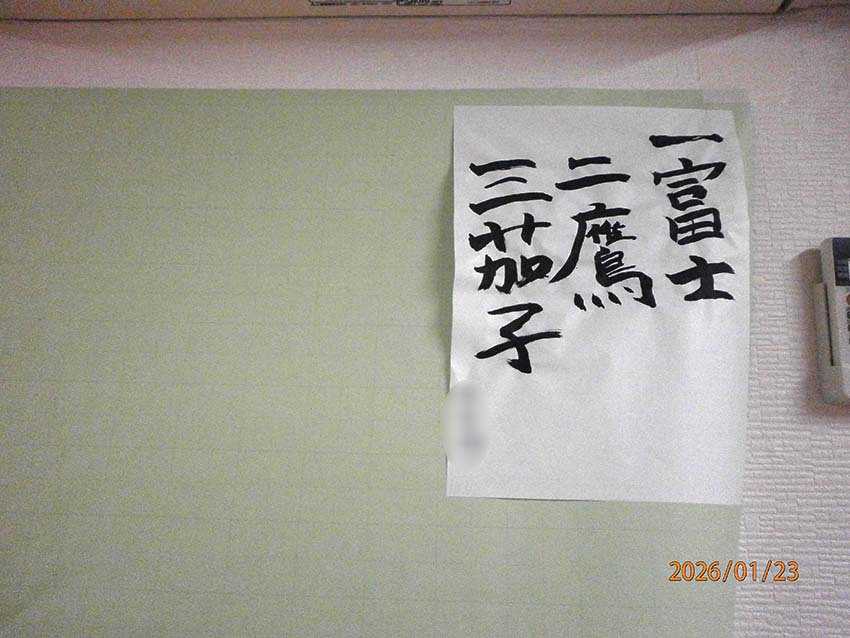 一富士
二鷹
三茄子
2026/01/23